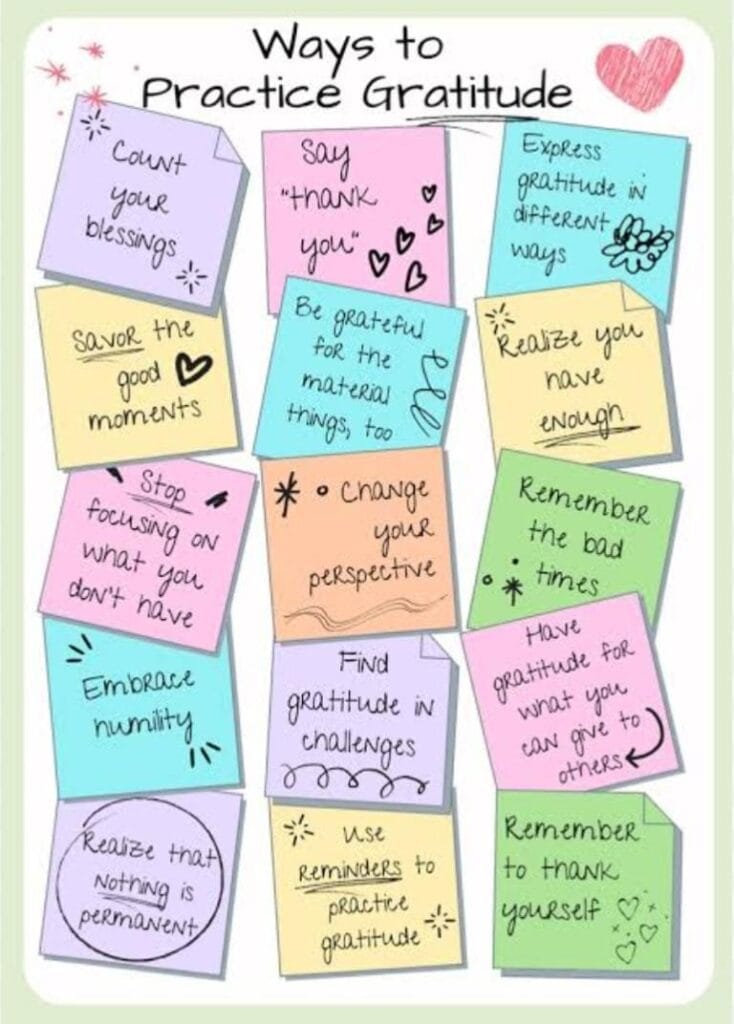 Ways to
Practice Gratitude
Count
your
blessings
Say
"thank
you"
Express
gratitude in
different
ways
Savor the
good
moments
Be grateful
for the
material
things, too
Realize you
have
enough
Stop
focusing on
what you
don't have
Change
your
perspective
Remember
the bad
times
Embrace
humility
Find
gratitude in
challenges
Have
gratitude for
what you
can give to
others
Realize that
Nothing is
permanent
Use
Reminders to
practice
gratitude
Remember
to thank
yourself